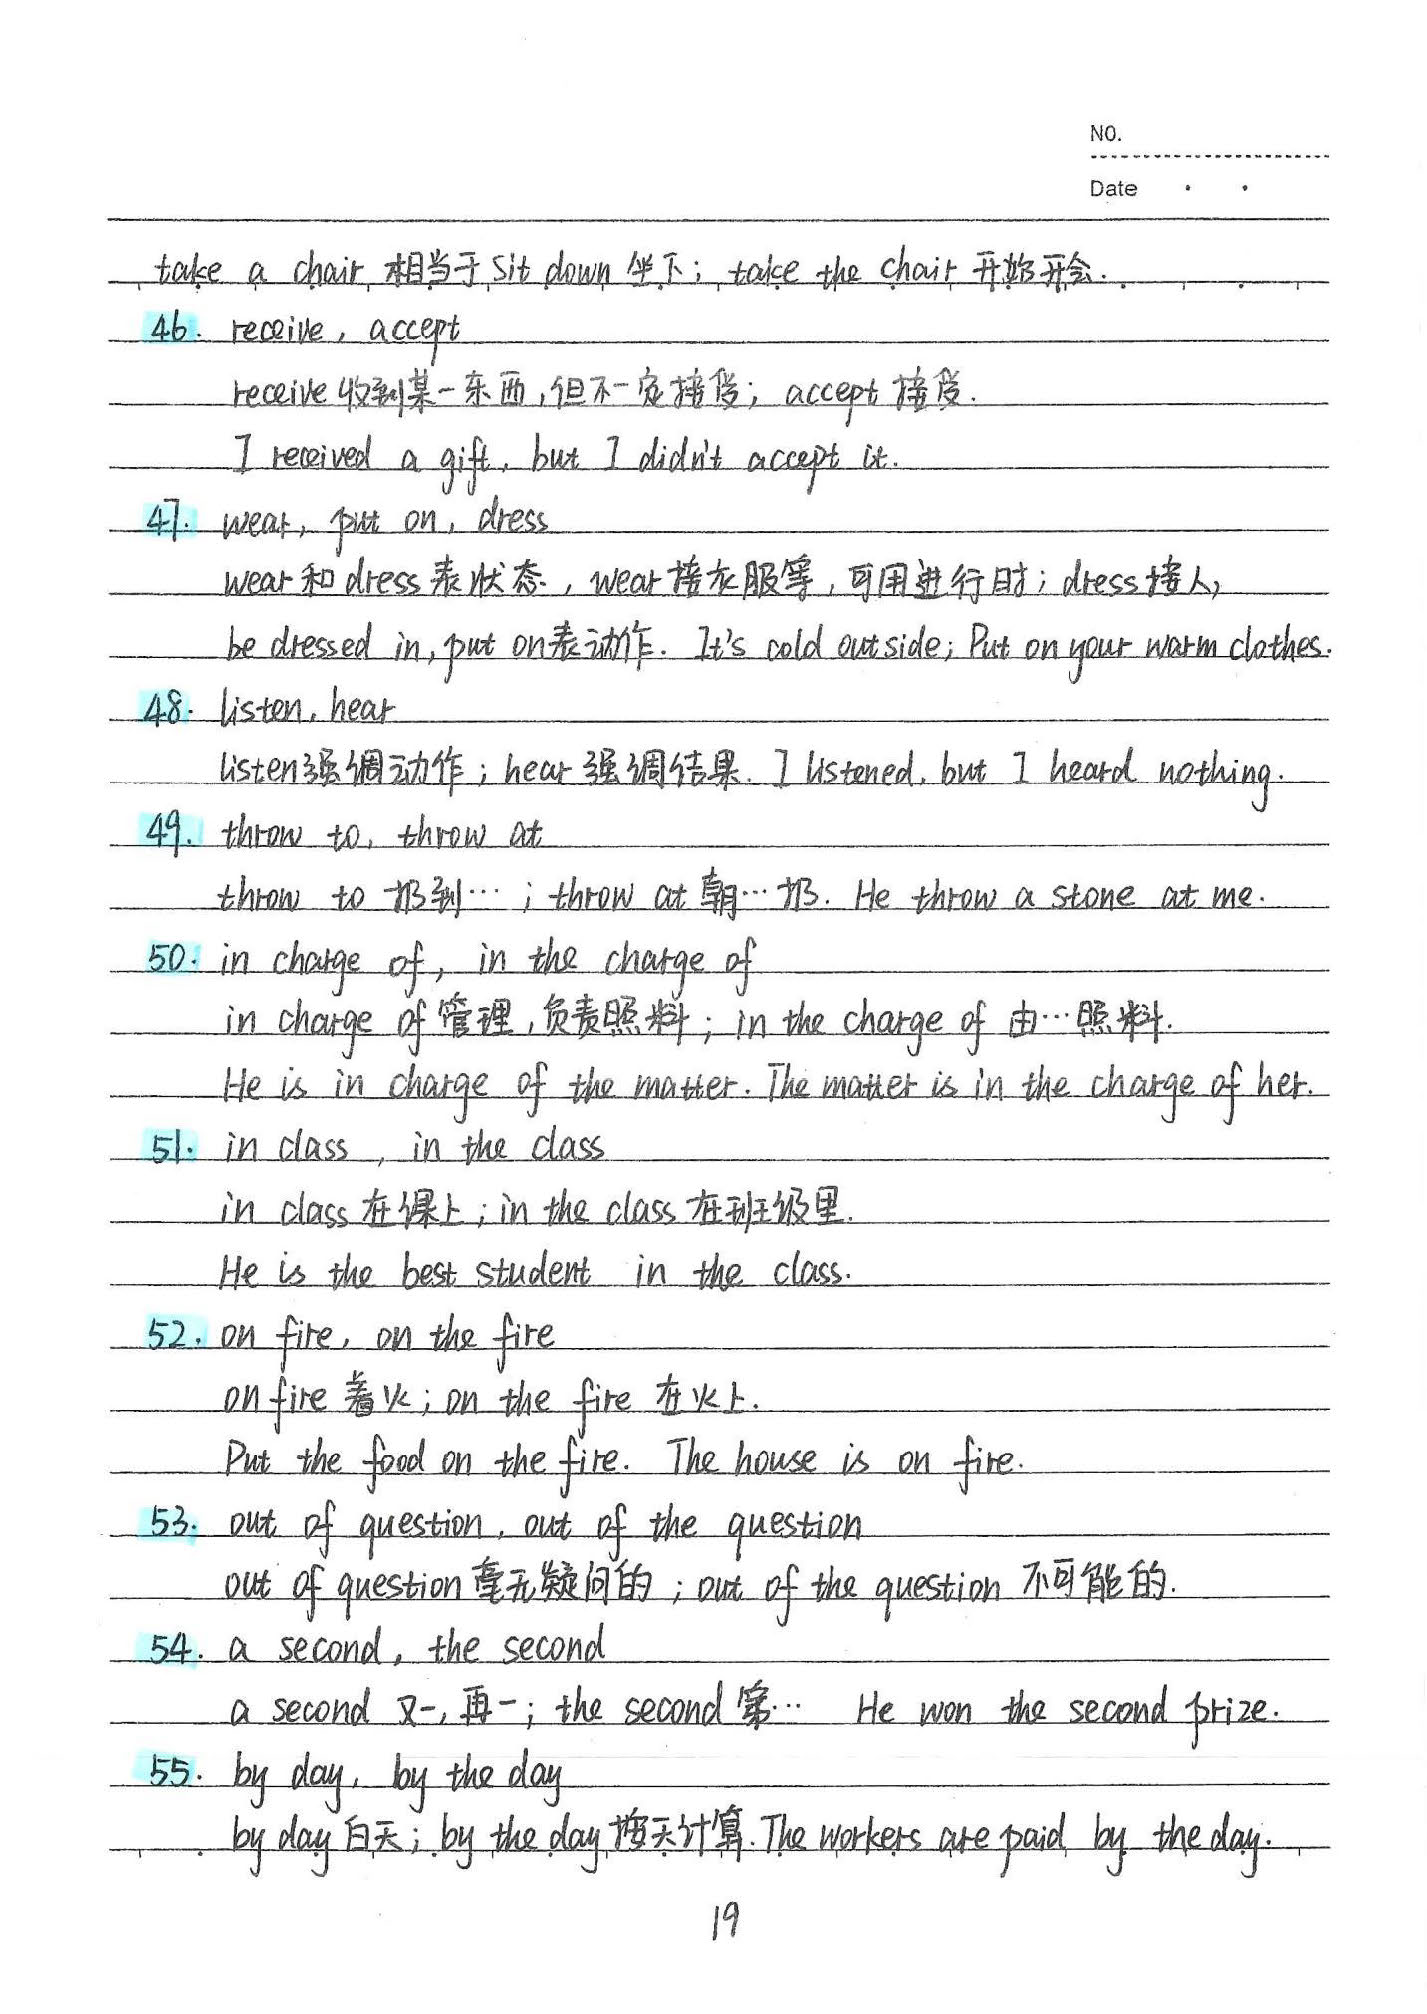 NO.
Date
take a chair 相当于 sit down 坐下; take the chair 开始开会.
46. receive, accept
receive 收到某一东西,但不一定接受; accept 接受.
I received a gift, but I didn't accept it.
47. wear, put on, dress
wear 和 dress 表状态, wear 接衣服等,可用进行时; dress 接人,
be dressed in, put on 表动作. It's cold outside; Put on your warm clothes.
48. listen, hear
listen 强调动作; hear 强调结果. I listened, but I heard nothing.
49. throw to, throw at
throw to 扔到…; throw at 朝…扔. He throw a stone at me.
50. in charge of, in the charge of
in charge of 管理,负责照料; in the charge of 由…照料.
He is in charge of the matter. The matter is in the charge of her.
51. in class, in the class
in class 在课上; in the class 在班级里.
He is the best student in the class.
52. on fire, on the fire
on fire 着火; on the fire 在火上.
Put the food on the fire. The house is on fire.
53. out of question, out of the question
out of question 毫无疑问的; out of the question 不可能的.
54. a second, the second
a second 又一,再一; the second 第… He won the second prize.
55. by day, by the day
by day 白天; by the day 按天计算. The workers are paid by the day.
19